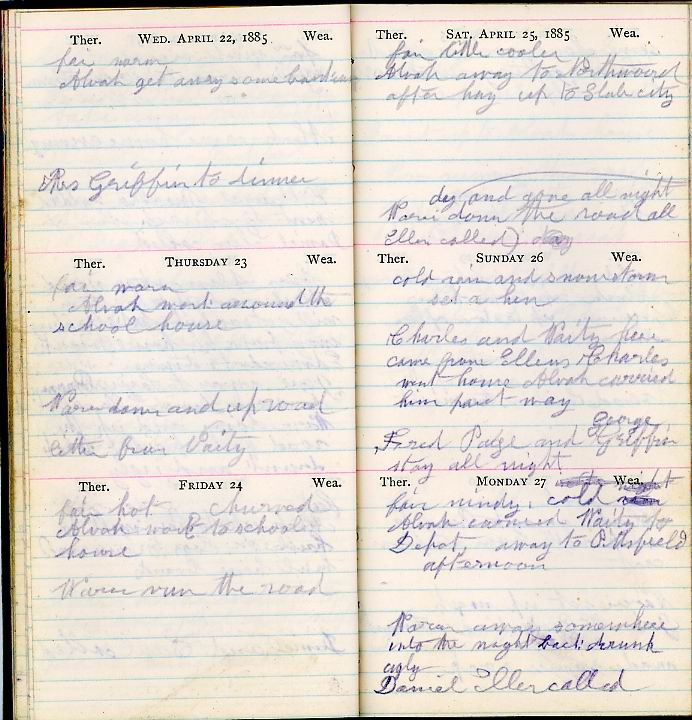 Ther. WED. APRIL 22, 1885 Wea.
fair warm
Alvah get away some
Mrs Griffin to dinner
Ther. THURSDAY 23 Wea.
fair warm
Alvah work around the
school house
down and up road
letter from Vaity
Ther. FRIDAY 24 Wea.
fair hot churned
Alvah work to school
house
run the road
Ther. SAT. APRIL 25, 1885 Wea.
fair little cooler
Alvah away to Northwood
after hay up to Slab city
day and gone all night
down the road all
Ellen called) day
Ther. SUNDAY 26 Wea.
cold rain and snow storm
set a hen
Charles and Vaity here
came from Ellens Charles
went home Alvah carried
him part way
George
Fred Paige and Griffin
stay all night
Ther. MONDAY 27 Wea.
fair windy cold
Alvah carried Vaity to
Depot away to Pittsfield
afternoon
away somewhere
into the night back drunk
ugly
Daniel Eller called